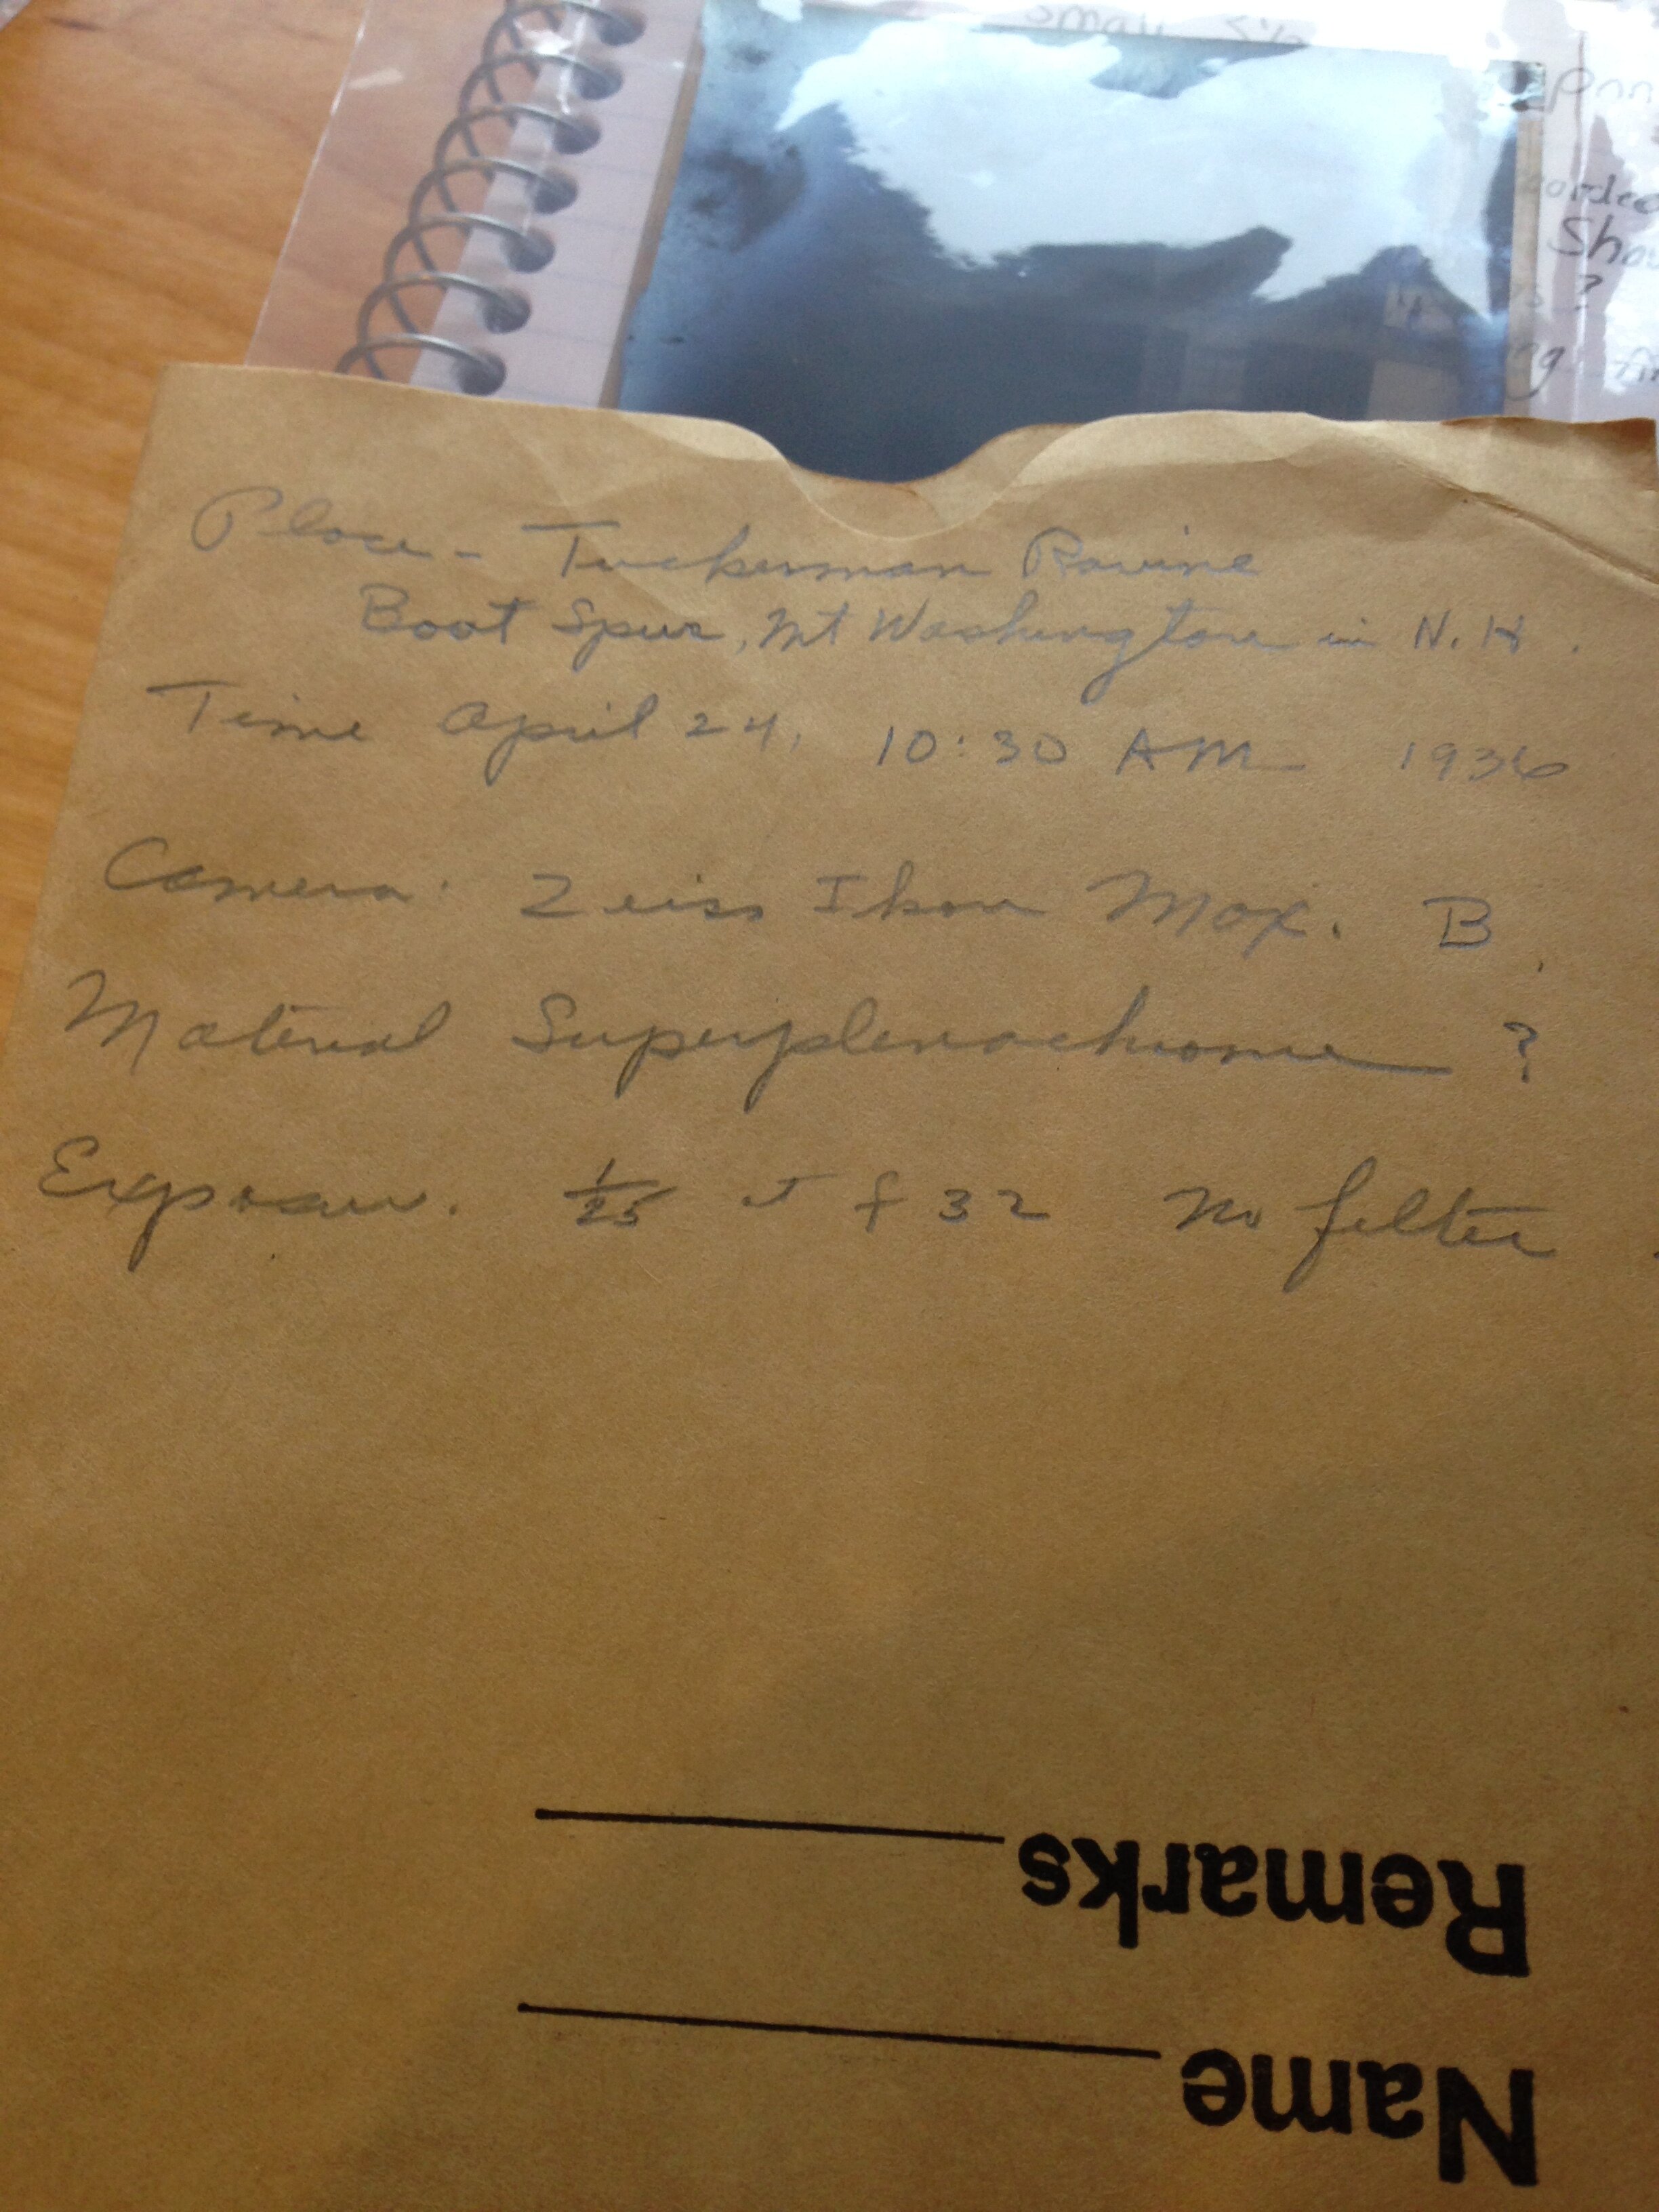 small
Place - Tuckerman Ravine
Boot Spur, Mt Washington in N.H.
Time April 24, 10:30 AM 1936
Camera. Zeiss Ikon Max. B.
Material Superplenachrome ?
Exposure. 1/25 at f 32 No filter.
Remarks
Name